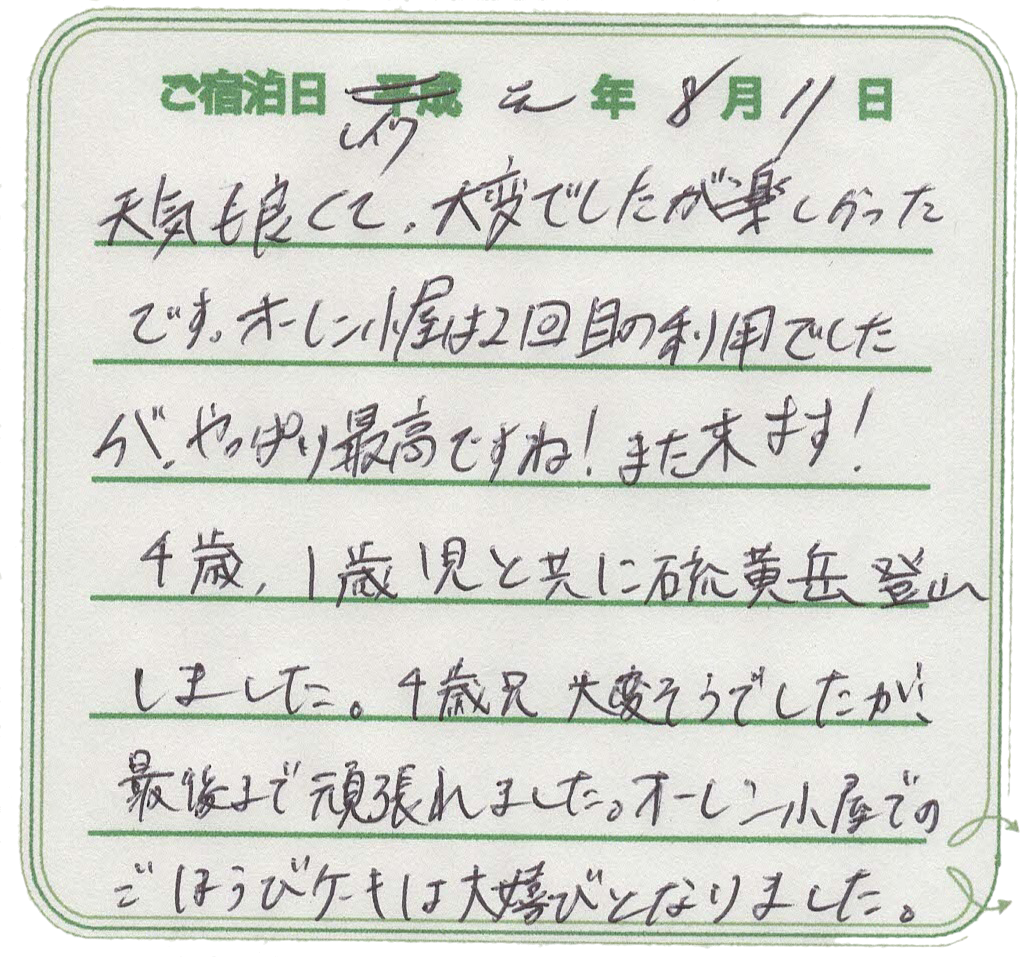 ご宿泊日 平成 元年 8月11日
レイワ
天気も良くて、大変でしたが楽しかった
です。オーレン小屋は2回目の利用でした
が、やっぱり最高ですね!また来ます!
4歳、1歳児と共に硫黄岳登山
しました。4歳児大変そうでしたが、
最後まで頑張れました。オーレン小屋での
ごほうびケーキは大喜びとなりました。